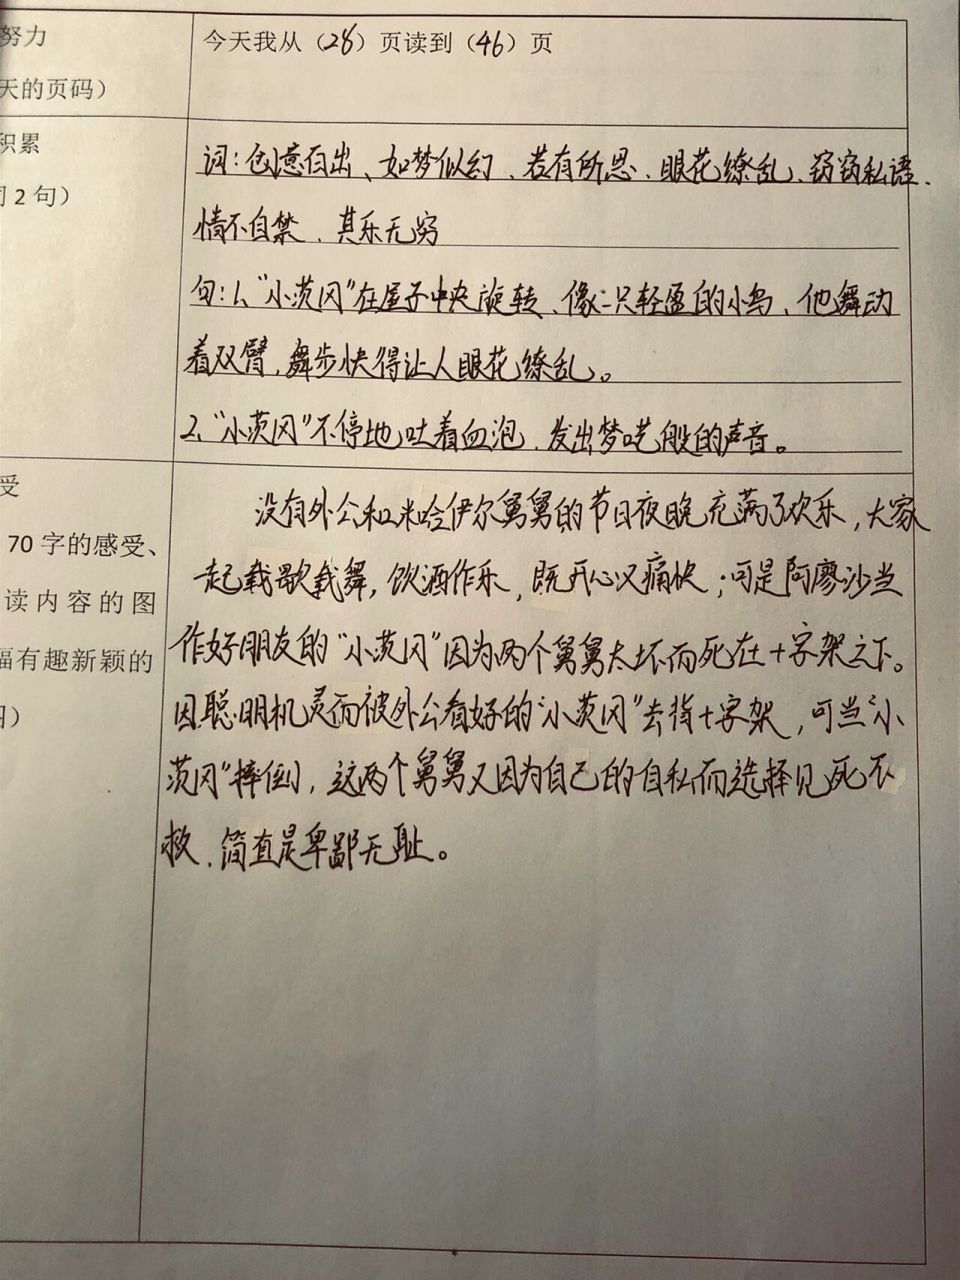 努力
今天我从（28）页读到（46）页
天的页码）
积累
词：创意百出、如梦似幻、若有所思、眼花缭乱、窃窃私语、
2句）
情不自禁、其乐无穷
句：1、“小茨冈”在屋子中央旋转、像一只轻盈的小鸟、他舞动
着双臂，舞步快得让人眼花缭乱。
2、“小茨冈”不停地吐着血泡、发出梦呓般的声音。
受
没有外公和米哈伊尔舅舅的节日夜晚充满了欢乐，大家
70字的感受、
一起载歌载舞，饮酒作乐，既开心又痛快；可是阿廖沙当
读内容的图
作好朋友的“小茨冈”因为两个舅舅太坏而死在十字架之下。
有趣新颖的
因聪明机灵而被外公看好的“小茨冈”去背十字架，可当“小
茨冈”摔倒，这两个舅舅又因为自己的自私而选择见死不
救、简直是卑鄙无耻。